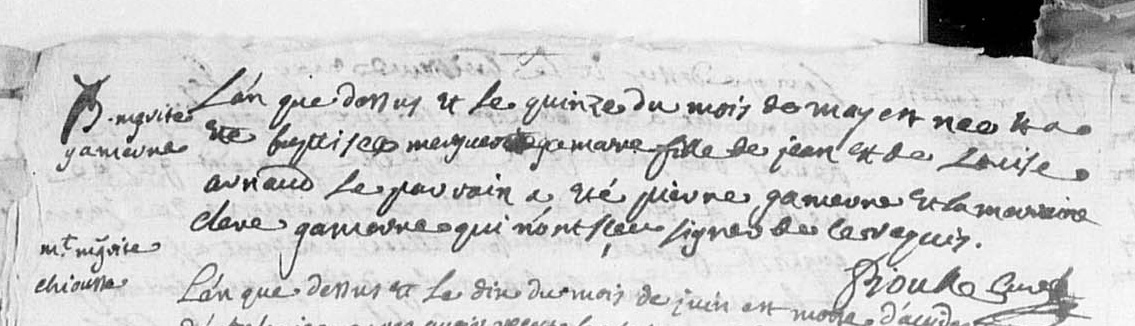 B. mgvite
gamevre
L'an que dessus et le quinze du mois de may est nee et a
eté baptisee marguerite gamavre fille de jean et de Louise
arnaud le parrain a eté pierre gamevre et la marraine
clere gamevre qui n'ont sceu signer de ce requis.
Rioulle Curé
mt mgvite
chiousse
L'an que dessus et le dix du mois de juin est morte